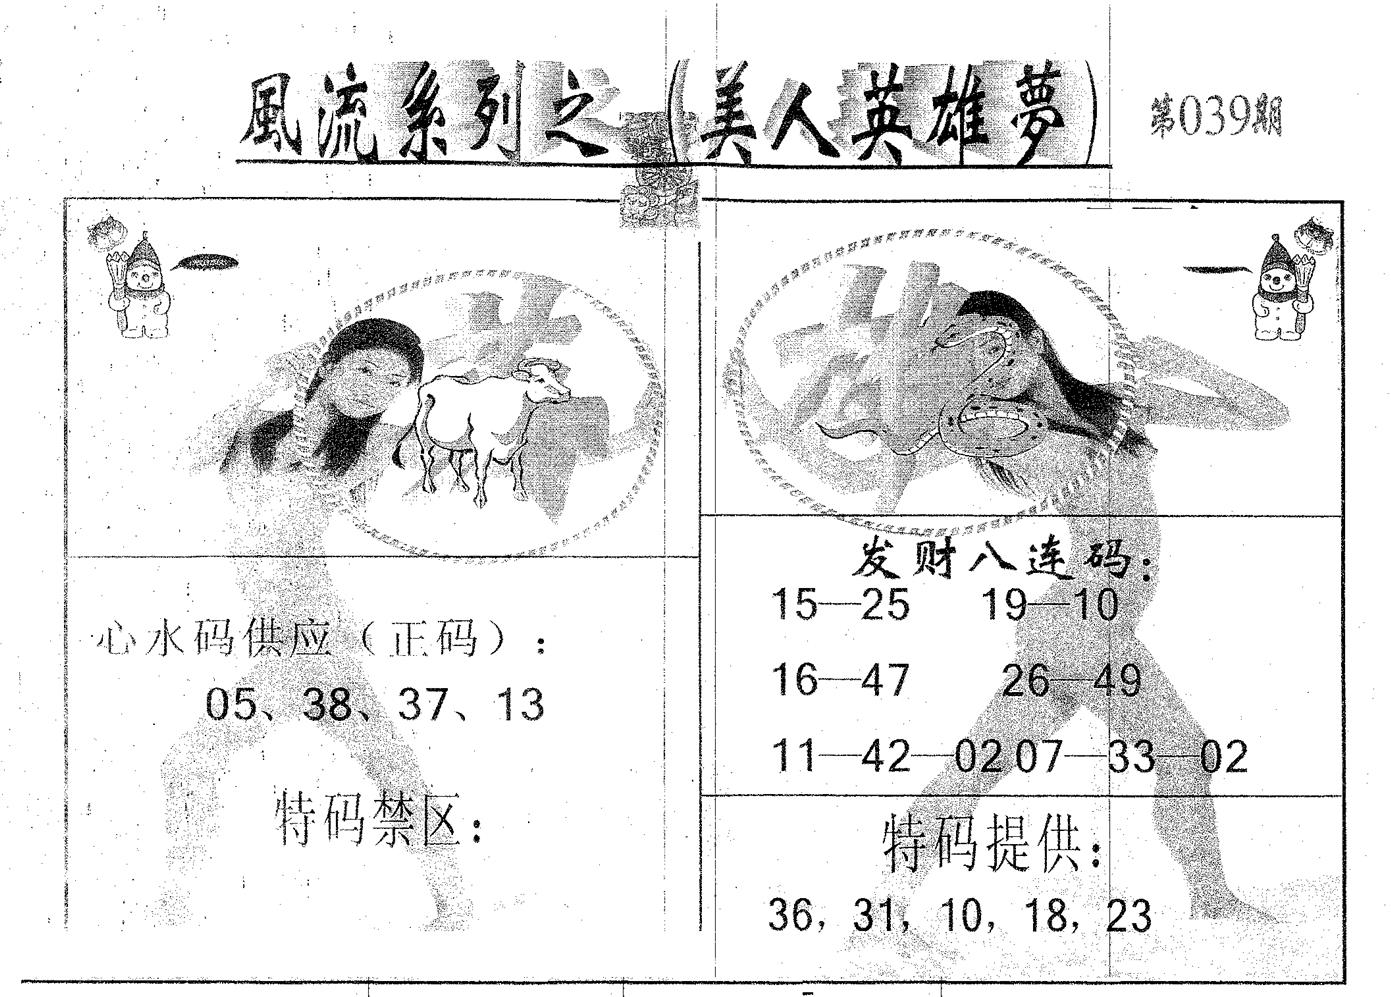 風流系列之（美人英雄夢）
第039期
心水码供应（正码）：
05、38、37、13
特码禁区：
发财八连码：
15—25 19—10
16—47 26—49
11—42—02 07—33—02
特码提供：
36，31，10，18，23